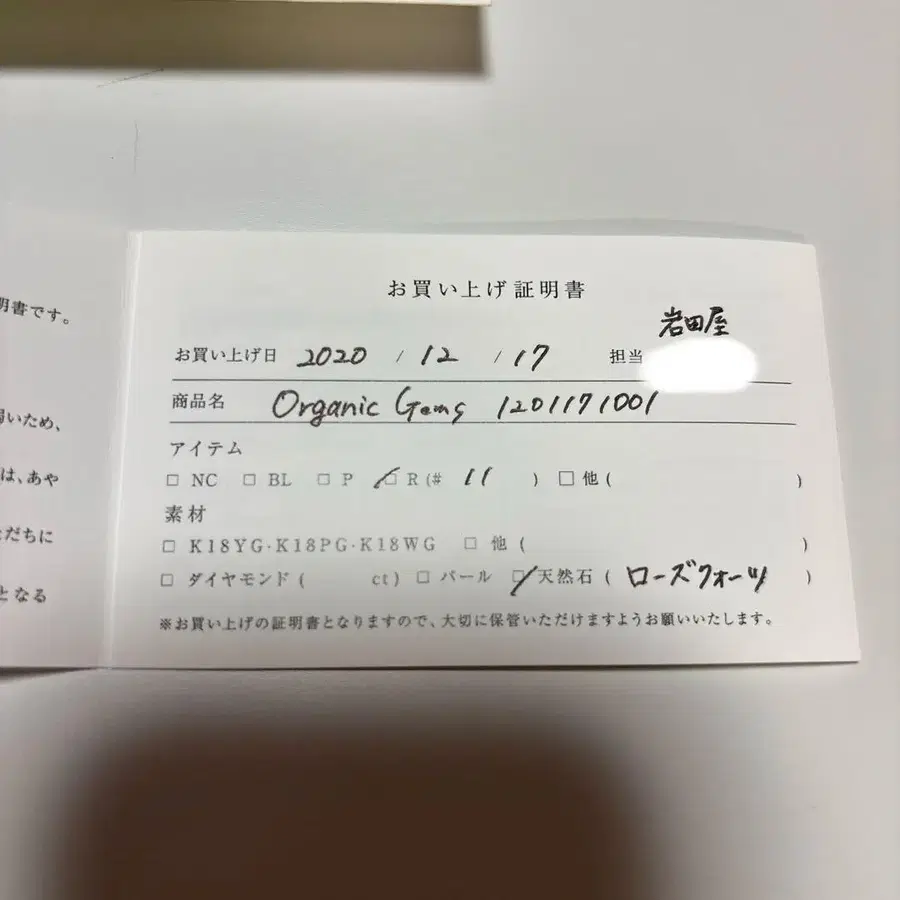 明書です。
いため、
は、あや
だちに
となる
お買い上げ証明書
岩田屋
お買い上げ日 2020 / 12 / 17 担当
商品名 Organic Gems 1201171001
アイテム
□ NC □ BL □ P □ R (# 11 ) □ 他 ( )
素材
□ K18YG・K18PG・K18WG □ 他 ( )
□ ダイヤモンド ( ct ) □ パール □ 天然石 ( ローズクォーツ )
※お買い上げの証明書となりますので、大切に保管いただけますようお願いいたします。